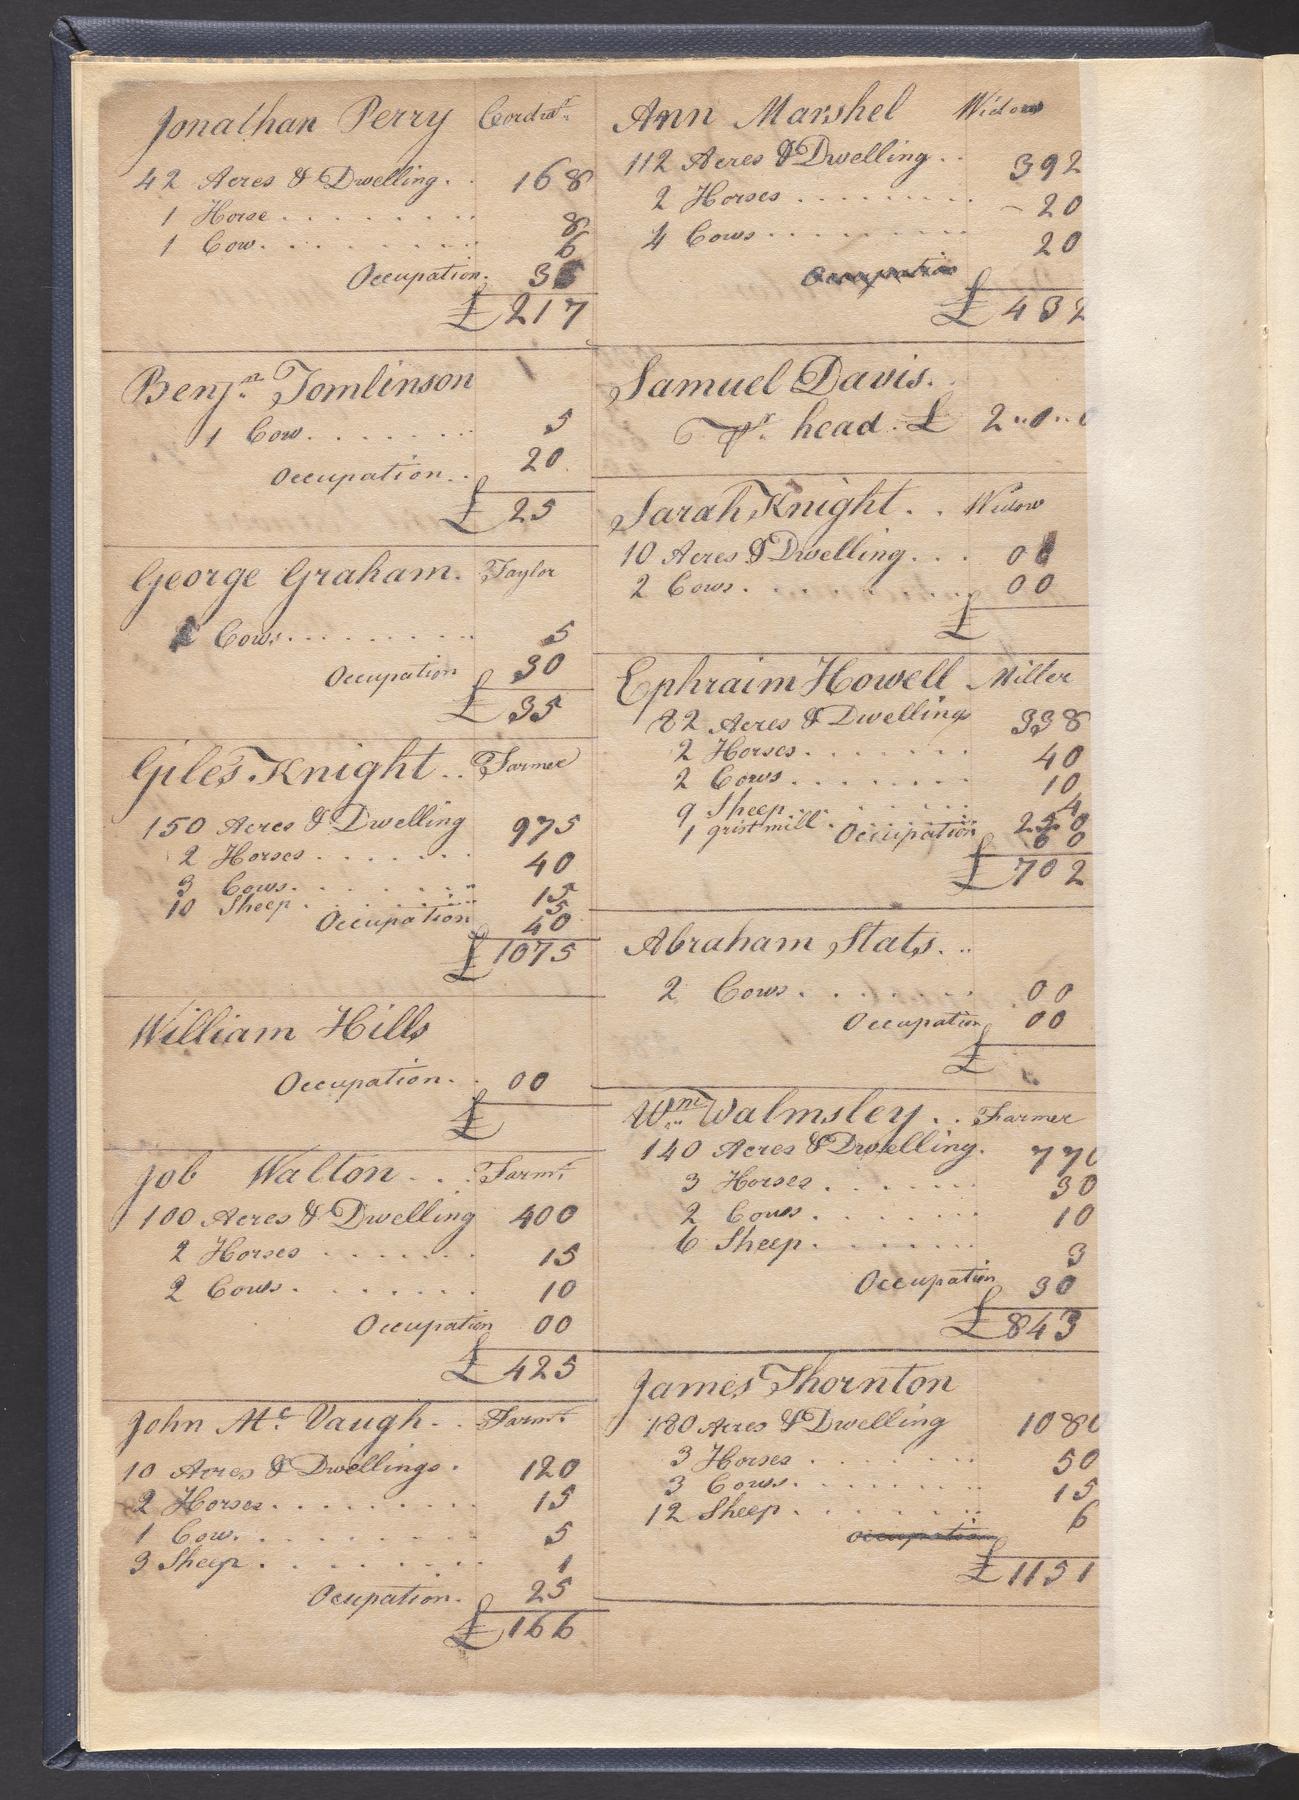 Jonathan Perry Cordwr.
42 Acres & Dwelling. . 168
1 Horse . . . . . . . . 8
1 Cow. . . . . . . . . 6
Occupation. 35
£217
Benjn. Tomlinson
1 Cow. . . . . . . 5
Occupation. . 20
£25
George Graham. Taylor
Cows. . . . . . . . . 5
Occupation 30
£35
Giles Knight . . Farmer
150 Acres & Dwelling 975
2 Horses . . . . . . . 40
3 Cows. . . . . . . . 15
10 Sheep . . . . . . . . 5
Occupation 40
£1075
William Hills
Occupation. . 00
£
Job Walton . . . Farmr.
100 Acres & Dwelling 400
2 Horses . . . . . . . 15
2 Cows. . . . . . . . 10
Occupation 00
£425
John Mc. Vaugh. . . Farmr.
10 Acres & Dwellings . 120
2 Horses. . . . . . . . . 15
1 Cow. . . . . . . . . . 5
3 Sheep . . . . . . . . . 1
Ocupation. 25
£166
Ann Marshel Widow
112 Acres & Dwelling . . 392
2 Horses . . . . . . . . . 20
4 Cows . . . . . . . . . 20
Occupation
£432
Samuel Davis. .
Pr. head. £ 2"0"0
Sarah Knight . . Widow
10 Acres & Dwelling. . . 0
2 Cows. . . . . . . . . 00
£
Ephraim Howell Miller
82 Acres & Dwellings 338
2 Horses. . . . . . . . 40
2 Cows . . . . . . . . 10
9 Sheep . . . . . . . . . 4
1 grist mill . . . . . . . 250
Occupation 60
£702
Abraham Stats. . .
2 Cows . . . . . . . 00
Occupation 00
£
Wm. Walmsley . . Farmer
140 Acres & Dwelling. 770
3 Horses . . . . . . . . 30
2 Cows . . . . . . . . 10
6 Sheep . . . . . . . 3
Occupation 30
£843
James Thornton
180 Acres & Dwelling 1080
3 Horses . . . . . . . . 50
3 Cows. . . . . . . . . 15
12 Sheep . . . . . . . . 6
occupation
£1151